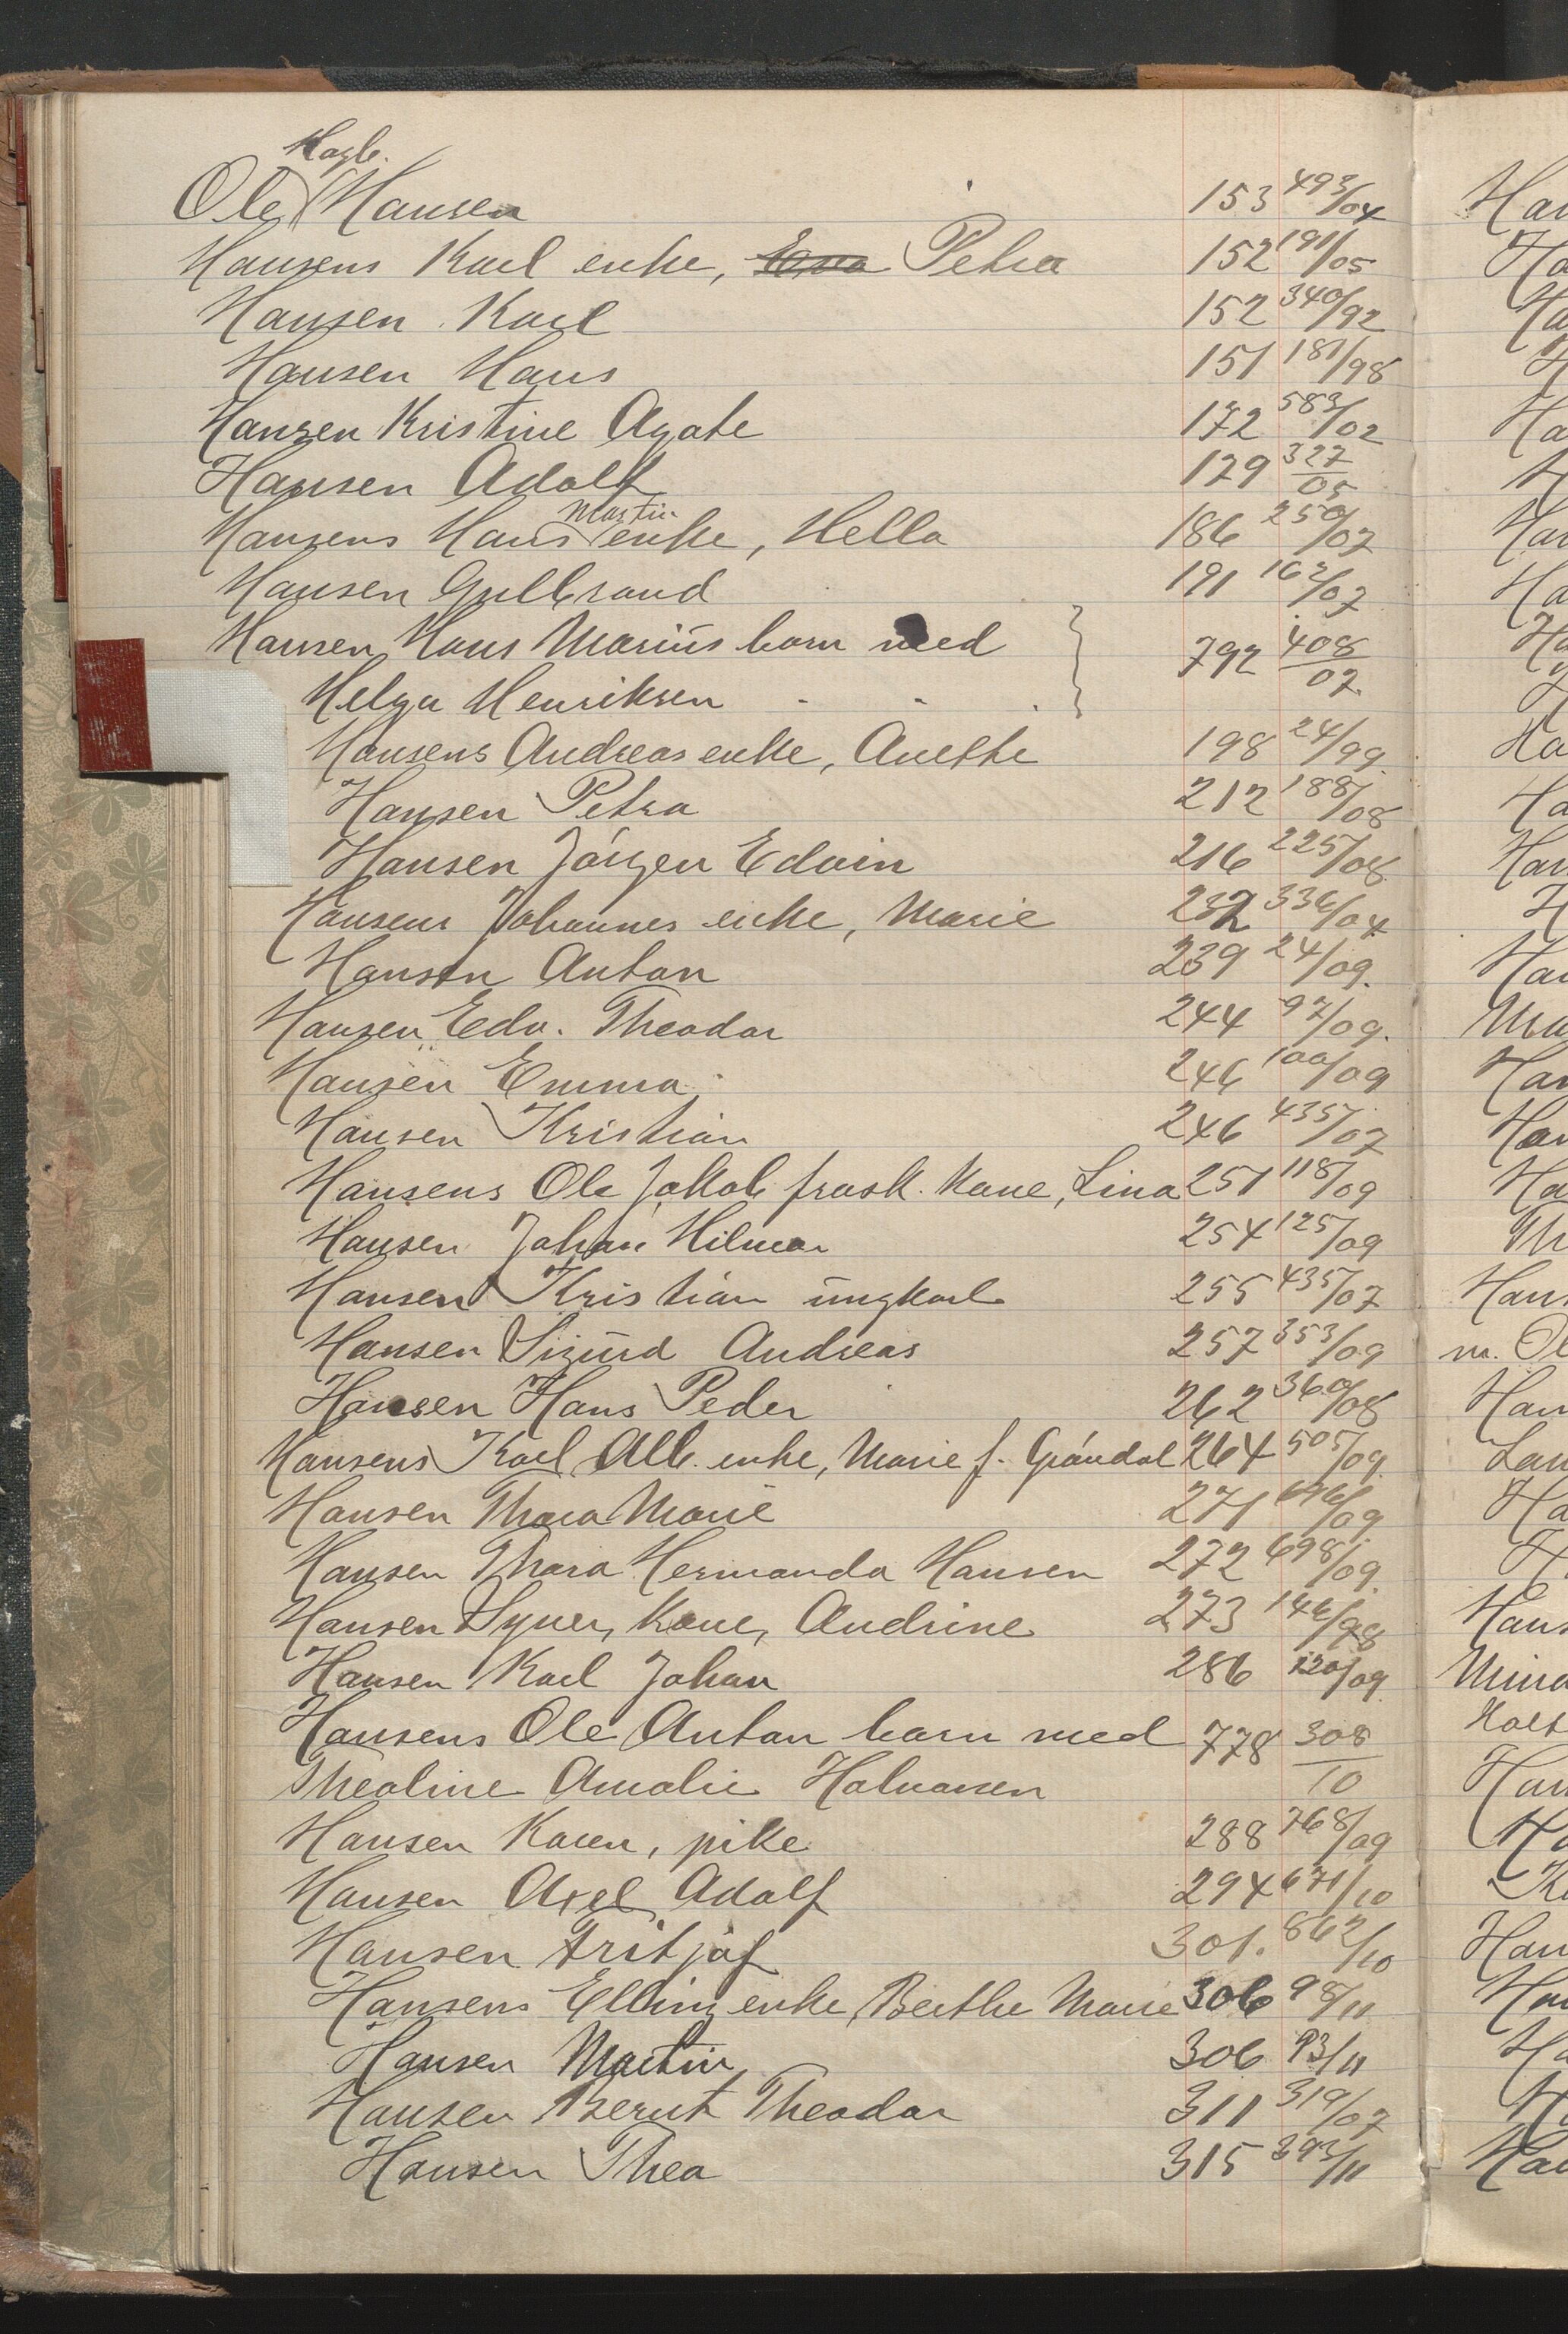 Hagb.
Ole Hansen 153 493/04
Hansens Karl enke, Eva Petra 152 191/05
Hansen Karl 152 340/92
Hansen Hans 151 181/98
Hansen Kristine Agate 172 583/02
Hansen Adolf 179 327/05
Martin
Hansens Hans enke, Hella 186 250/07
Hansen Gulbrand 191 162/07
Hansen Hans Marius barn med
792 408/07
Helga Henriksen
Hansens Andreas enke, Anethe 198 24/99
Hansen Petra 212 188/08
Hansen Jörgen Edvin 216 225/08
Hansens Johannes enke, Marie 232 336/04
Hansen Anton 239 24/09.
Hansen Edv. Theodor 244 97/09.
Hansen Emma 246 100/09
Hansen Kristian 246 435/07
Hansens Ole Jakob frask. kone, Lina 251 118/09
Hansen Johan Hilmar 254 125/09
Hansen Kristian ungkarl 255 435/07
Hansen Sigurd Andreas 257 353/09
Hansen Hans Peder 262 360/08
Hansens Karl Alb. enke, Marie f. Gröndal 264 505/09
Hansen Thora Marie 271 676/09
Hansen Thora Hermanda Hansen 272 698/09.
Hansen Syver, kone, Andrine 273 146/98
Hansen Karl Johan 286 120/09
Hansens Ole Anton barn med 778 308/10
Thealine Amalie Halvorsen
Hansen Karen, pike 288 768/09
Hansen Axel Adolf 294 671/10
Hansen Fritjof 301. 862/10
Hansens Elling enke, Berthe Marie 306 98/11
Hansen Martin 306 93/11
Hansen Bernt Theodor 311 319/07
Hansen Thea 315 393/11